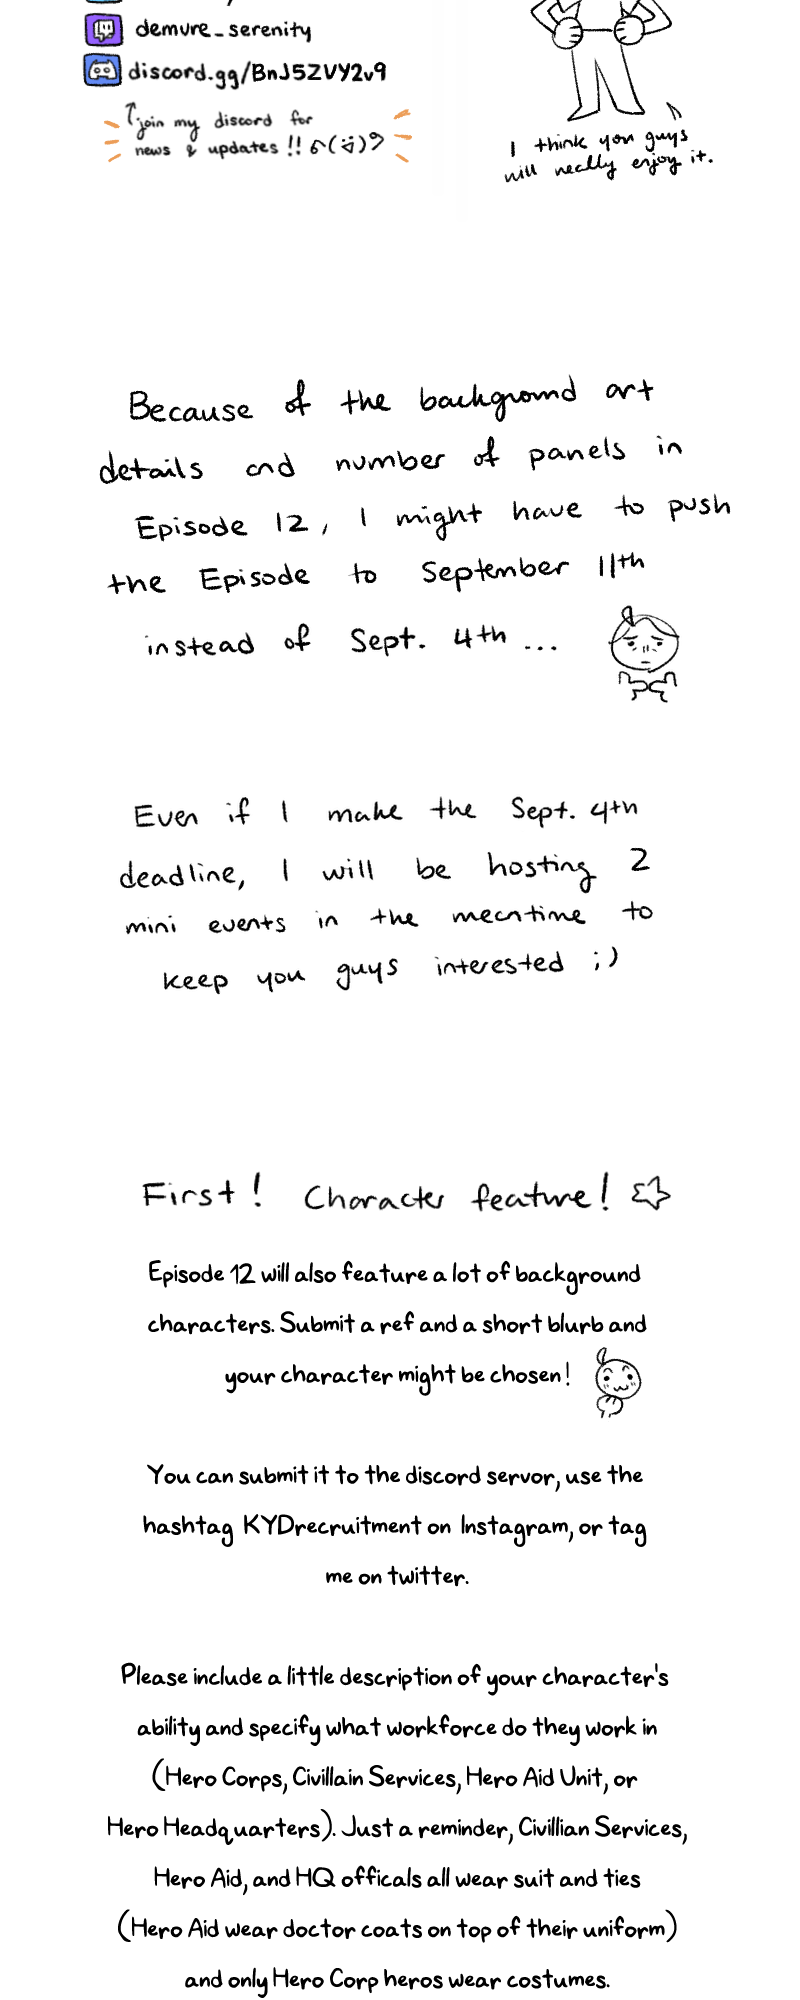 demure_serenity
discord.gg/BnJ5ZVY2v9
join my discord for
news & updates !!
I think you guys
will really enjoy it.
Because of the background art
details and number of panels in
Episode 12, I might have to push
the Episode to September 11th
instead of Sept. 4th ...
Even if I make the Sept. 4th
deadline, I will be hosting 2
mini events in the meantime to
keep you guys interested ;)
First! Character feature!
Episode 12 will also feature a lot of background
characters. Submit a ref and a short blurb and
your character might be chosen!
You can submit it to the discord servor, use the
hashtag KYDrecruitment on Instagram, or tag
me on twitter.
Please include a little description of your character's
ability and specify what workforce do they work in
(Hero Corps, Civillain Services, Hero Aid Unit, or
Hero Headquarters). Just a reminder, Civillian Services,
Hero Aid, and HQ officals all wear suit and ties
(Hero Aid wear doctor coats on top of their uniform)
and only Hero Corp heros wear costumes.